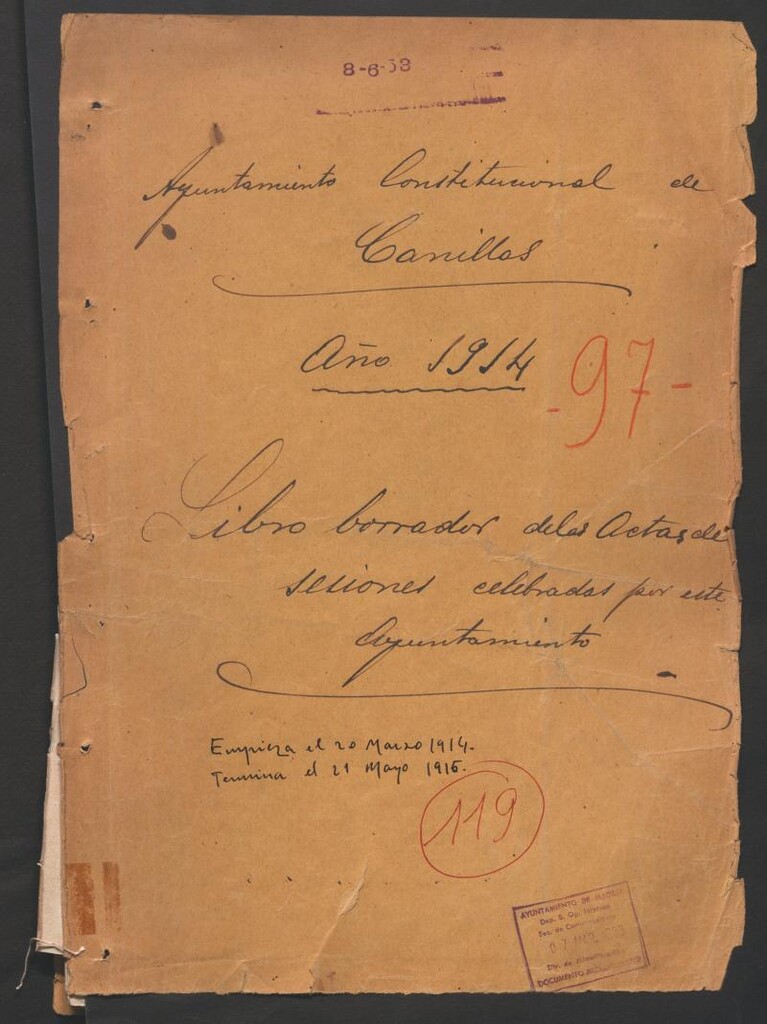 8-6-38
Ayuntamiento Constitucional de
Canillas
Año 1914
-97-
Libro borrador de las Actas de
sesiones celebradas por este
Ayuntamiento
Empieza el 20 Marzo 1914.
Termina el 21 Mayo 1916.
119
AYUNTAMIENTO DE MADRID
DOCUMENTO